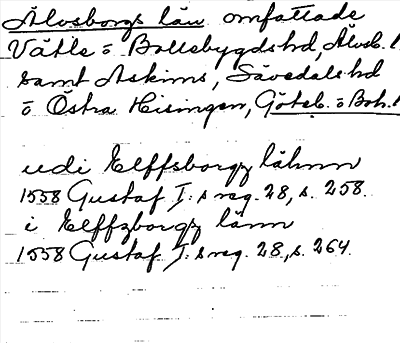 Älvsborgs län omfattade
Vätle o Bollebygds hd, Älvsb. l
samt Askims, Sävedals hd
o Östra Hisingen, Göteb. o Boh. l
udi Elffsborgz lähnn
1558 Gustaf I:s reg. 28, s. 258.
i Elffzborgz länn
1558 Gustaf I:s reg. 28, s. 264.